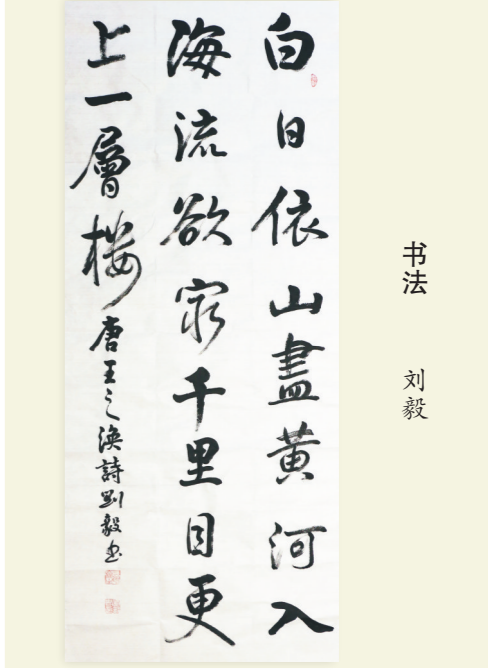 白日依山盡黄河入
海流欲窮千里目更
上一層楼唐王之渙詩劉毅书
书法
刘毅